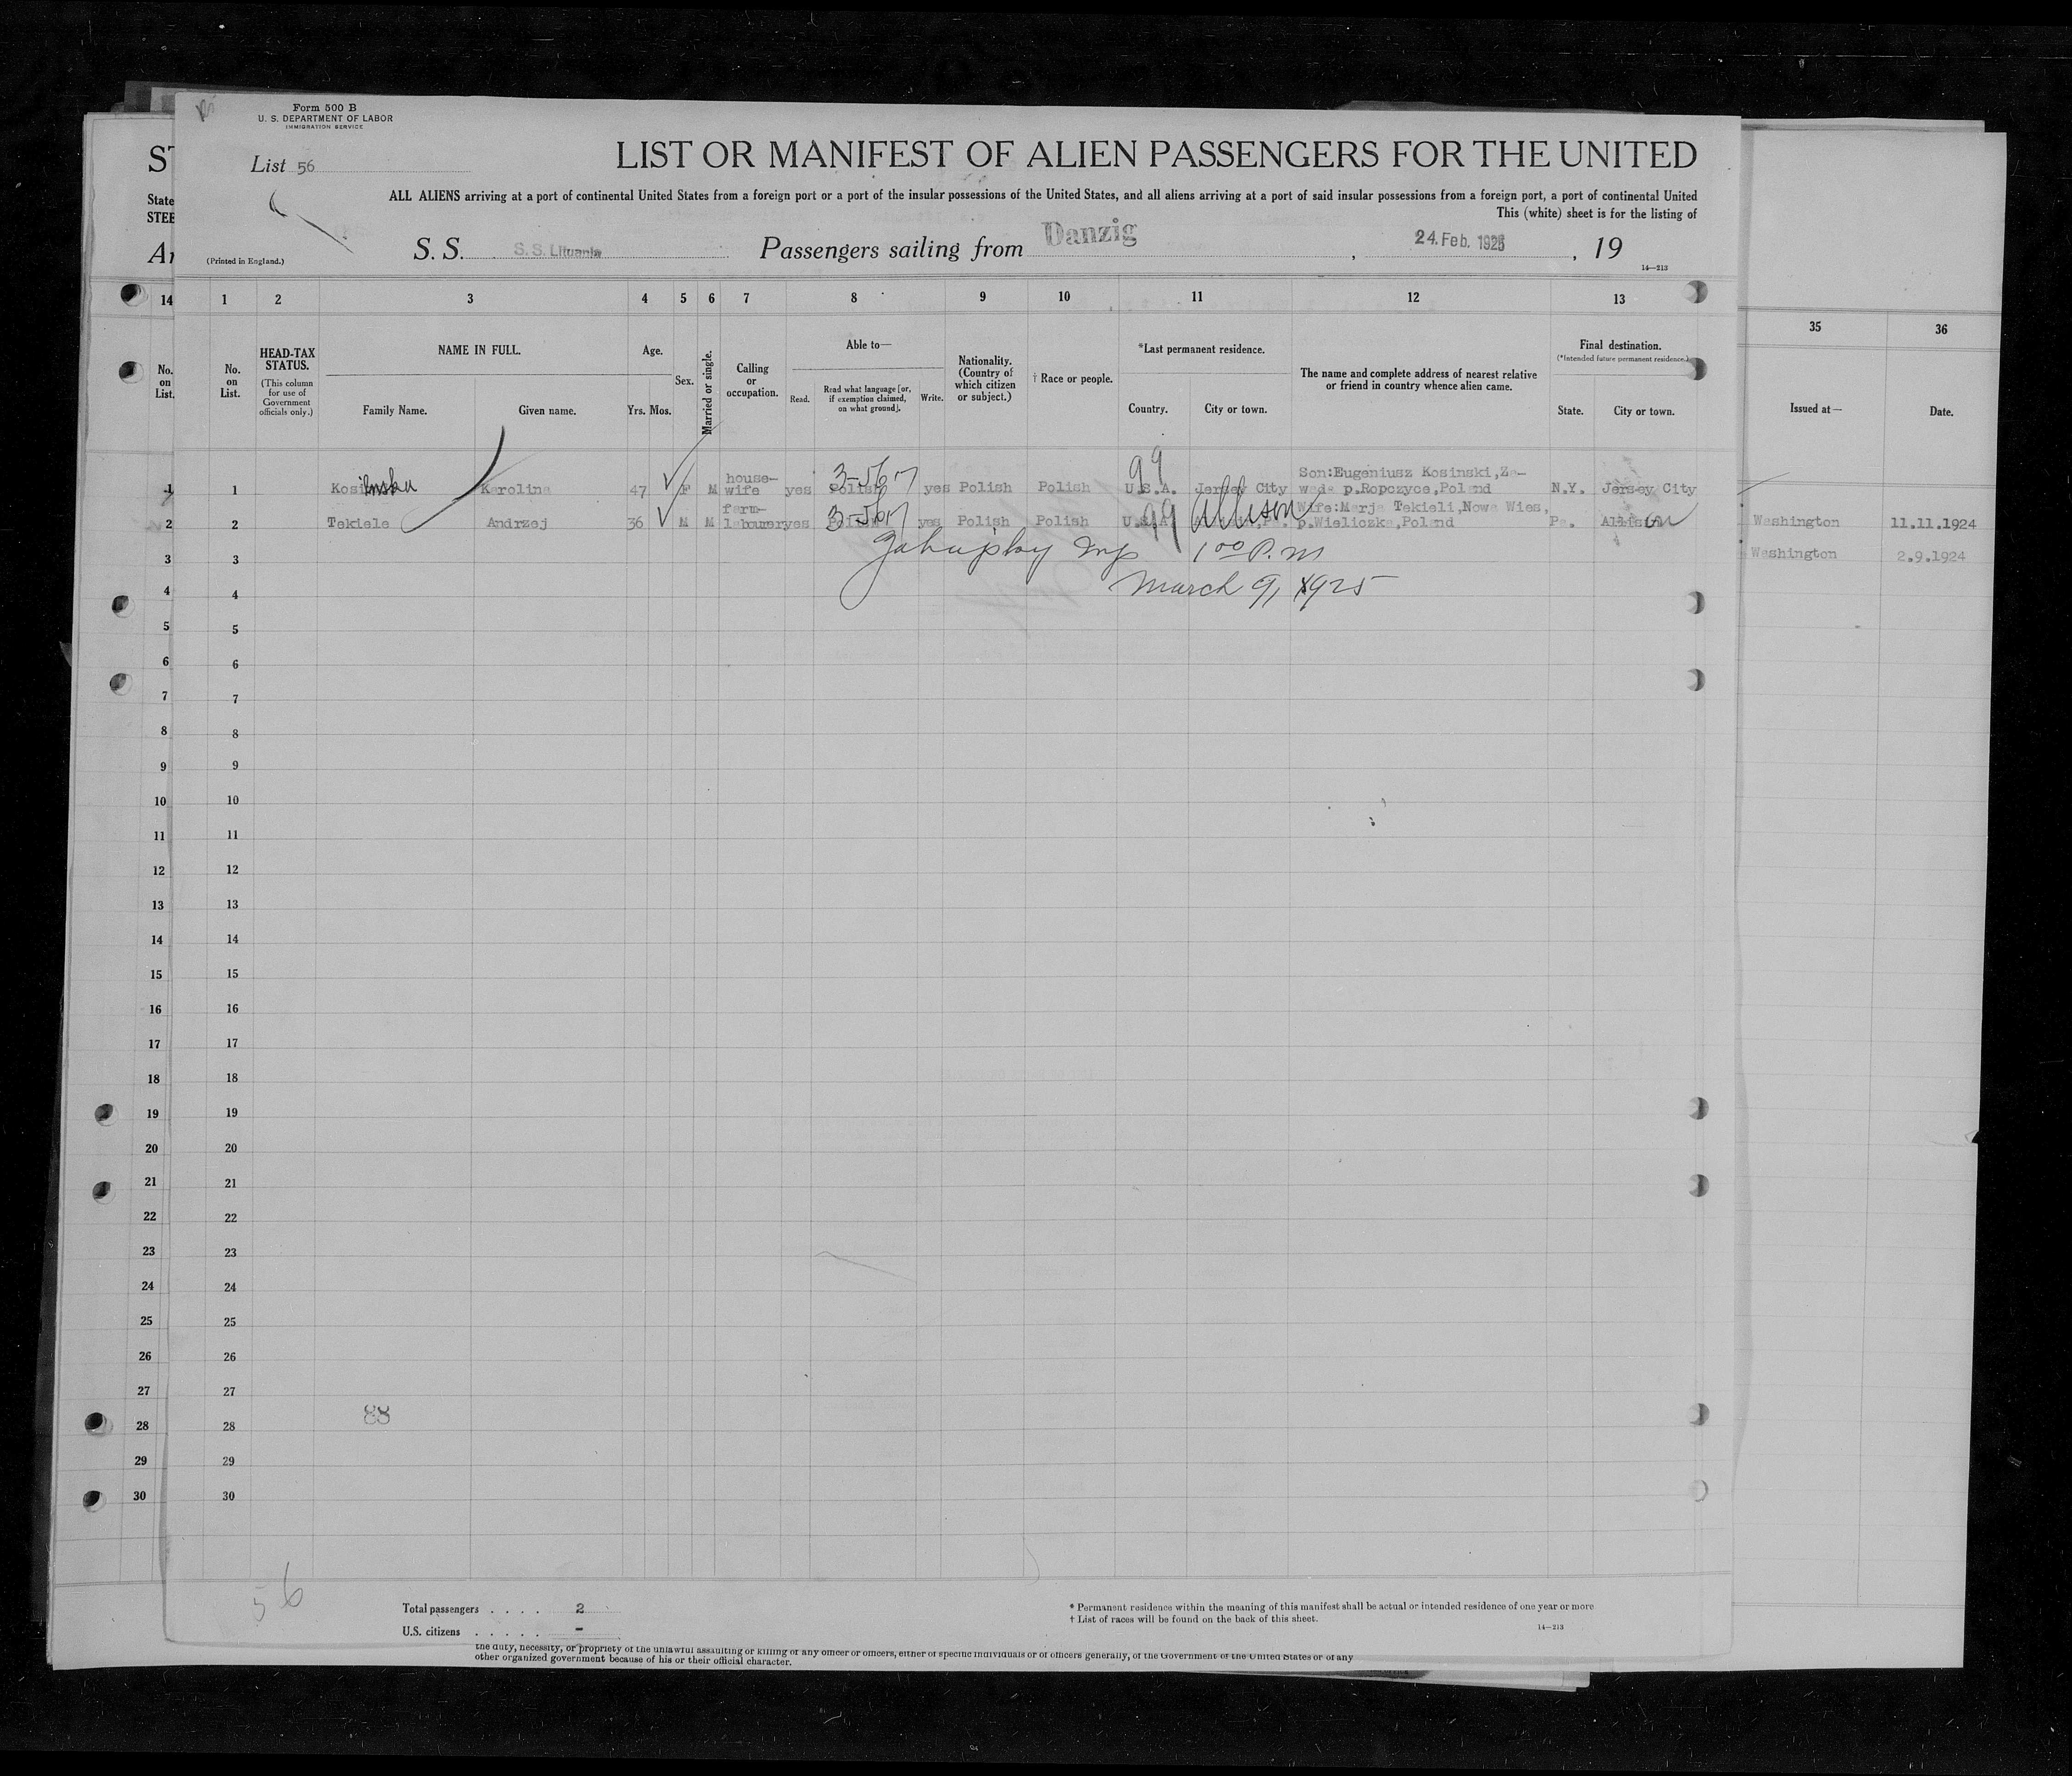 Form 500 B
U. S. DEPARTMENT OF LABOR
IMMIGRATION SERVICE
List 56
LIST OR MANIFEST OF ALIEN PASSENGERS FOR THE UNITED
ALL ALIENS arriving at a port of continental United States from a foreign port or a port of the insular possessions of the United States, and all aliens arriving at a port of said insular possessions from a foreign port, a port of continental United
This (white) sheet is for the listing of
State
STEE
(Printed in England.)
S. S. S. S. Lituania Passengers sailing from Danzig, 24. Feb. 1925, 19
14—213
14 1 2 3 4 5 6 7 8 9 10 11 12 13 35 36
No. on List.
No. on List.
HEAD-TAX STATUS.
(This column for use of Government officials only.)
NAME IN FULL.
Family Name. Given name.
Age.
Yrs. Mos.
Sex.
Married or single.
Calling or occupation.
Able to—
Read. Read what language [or, if exemption claimed, on what ground]. Write.
Nationality. (Country of which citizen or subject.)
† Race or people.
*Last permanent residence.
Country. City or town.
The name and complete address of nearest relative or friend in country whence alien came.
Final destination.
(*Intended future permanent residence.)
State. City or town.
Issued at— Date.
1 1 Kosinska Karolina 47 F M house-wife yes 3-5617 Polish yes Polish Polish 99 U.S.A. Jersey City Son:Eugeniusz Kosinski,Za-wada p.Ropczyce,Poland N.Y. Jersey City
2 2 Tekiele Andrzej 36 M M farm-labourer yes 3-5617 Polish yes Polish Polish 99 U.S.A. Allison Wife:Marja Tekieli,Nowa Wies, p.Wieliczka,Poland Pa. Allison Washington 11.11.1924
3 3 Insp 1 00 P. M Washington 2.9.1924
March 9, 1925
4 4
5 5
6 6
7 7
8 8
9 9
10 10
11 11
12 12
13 13
14 14
15 15
16 16
17 17
18 18
19 19
20 20
21 21
22 22
23 23
24 24
25 25
26 26
27 27
88
28 28
29 29
30 30
56
Total passengers . . . . 2
U.S. citizens . . . . . -
* Permanent residence within the meaning of this manifest shall be actual or intended residence of one year or more
† List of races will be found on the back of this sheet.
14—213
the duty, necessity, or propriety of the unlawful assaulting or killing of any officer or officers, either of specific individuals or of officers generally, of the Government of the United States or of any
other organized government because of his or their official character.